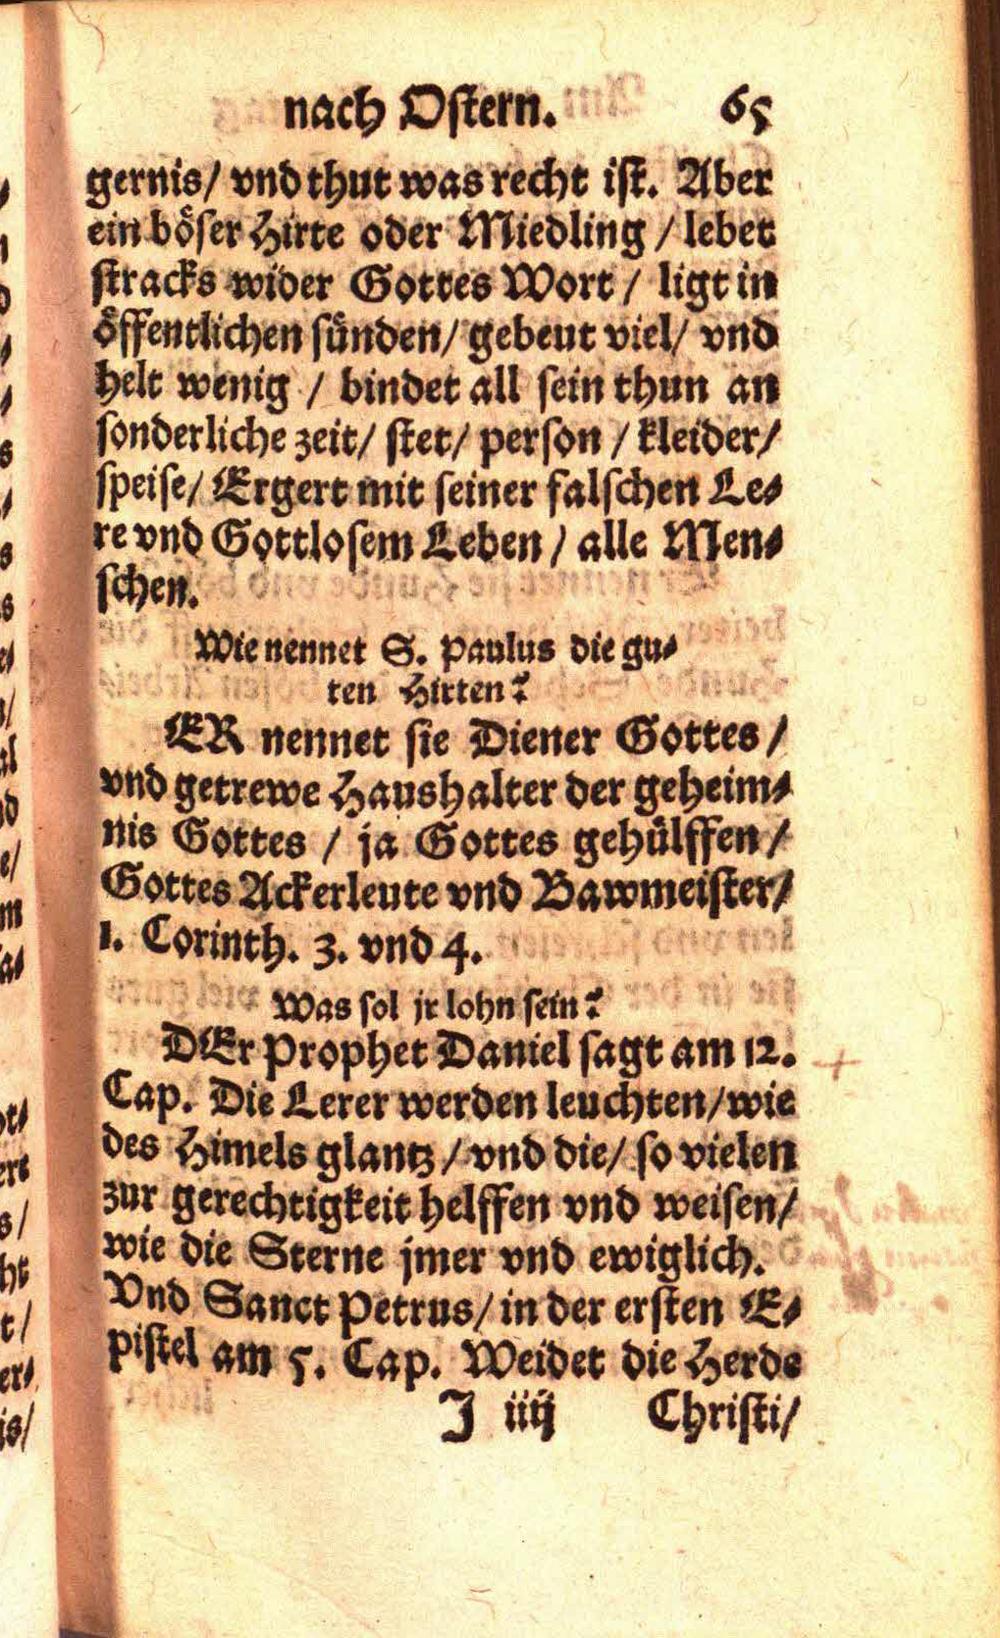 nach Ostern. 65
gernis/ vnd thut was recht ist. Aber
ein böser Hirte oder Miedling / lebet
stracks wider Gottes Wort / ligt in
öffentlichen sünden/ gebeut viel/ vnd
helt wenig / bindet all sein thun an
sonderliche zeit/ stet/ person / kleider/
speise/ Ergert mit seiner falschen Le⸗
re vnd Gottlosem Leben / alle Men⸗
schen.
Wie nennet S. Paulus die gu⸗
ten Hirten?
ER nennet sie Diener Gottes /
vnd getrewe Haushalter der geheim⸗
nis Gottes / ja Gottes gehülffen /
Gottes Ackerleute vnd Bawmeister/
1. Corinth. 3. vnd 4.
Was sol jr lohn sein?
DEr Prophet Daniel sagt am 12.
Cap. Die Lerer werden leuchten/ wie
des Himels glantz / vnd die/ so vielen
zur gerechtigkeit helffen vnd weisen/
wie die Sterne jmer vnd ewiglich.
Vnd Sanct Petrus/ in der ersten E⸗
pistel am 5. Cap. Weidet die Herde
J iiij Christi/